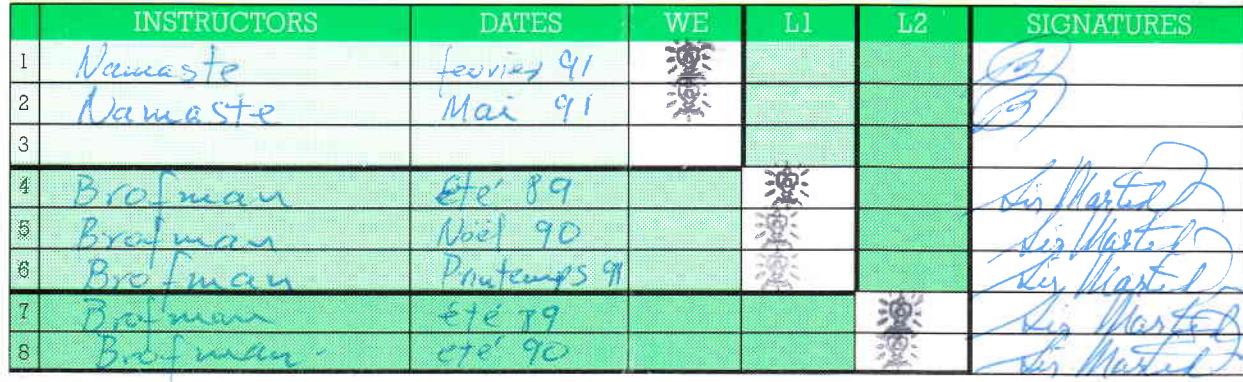 INSTRUCTORS DATES WE L1 L2 SIGNATURES
1 Namaste fevrier 91 B
2 Namaste Mai 91 B
3
4 Brofman Eté 89 Sir Martid
5 Brofman Noël 90 Sir Martid
6 Brofman Printemps 91 Sir Martid
7 Brofman été 89 Sir Martid
8 Brofman été 90 Sir Martid